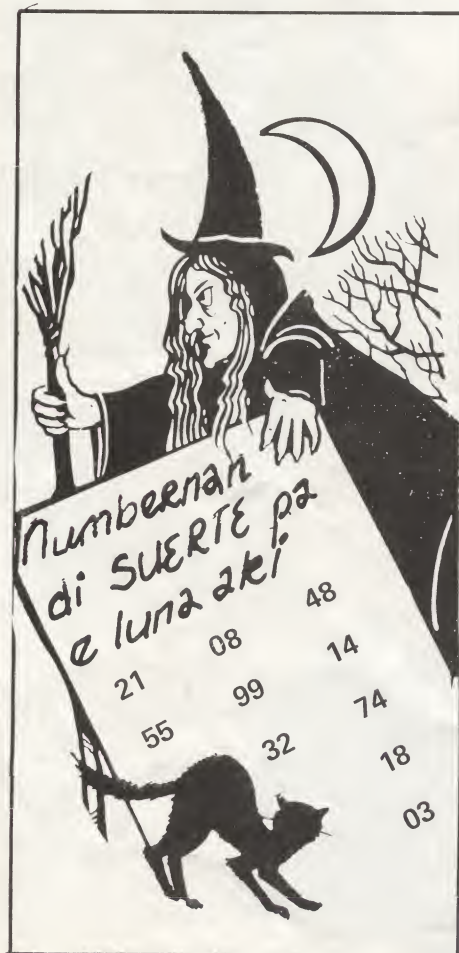 Numbernan
di SUERTE pa
e luna aki
21 08 48
55 99 14
32 74
18
03